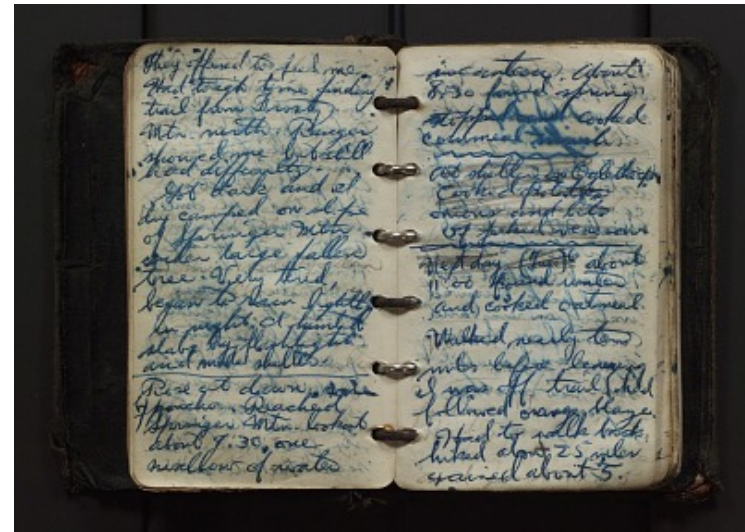 They offered to feed me.
Had tough time finding
trail from Frosty
Mtn. north. Ranger
showed me but still
had difficulty.
Got back and el
dry camped on slope
of Springer Mtn.
under large fallen
tree. Very tired,
began to rain lightly
in night, I hunted
slabs by flashlight
and made shelter
Rose at dawn,
poncho. Reached
Springer Mtn. lookout
about 7:30, one
swallow of water
in canteen. About
8:30 found spring
stopped and cooked
cornmeal
at shelter in Oglethorpe
cooked potatoes
onions and bits
of
Next day about
11:00 found water
and cooked oatmeal
Walked nearly two
miles before learning
I was off trail, had
followed orange blaze.
Had to walk back,
hiked about 25 miles
gained about 5.